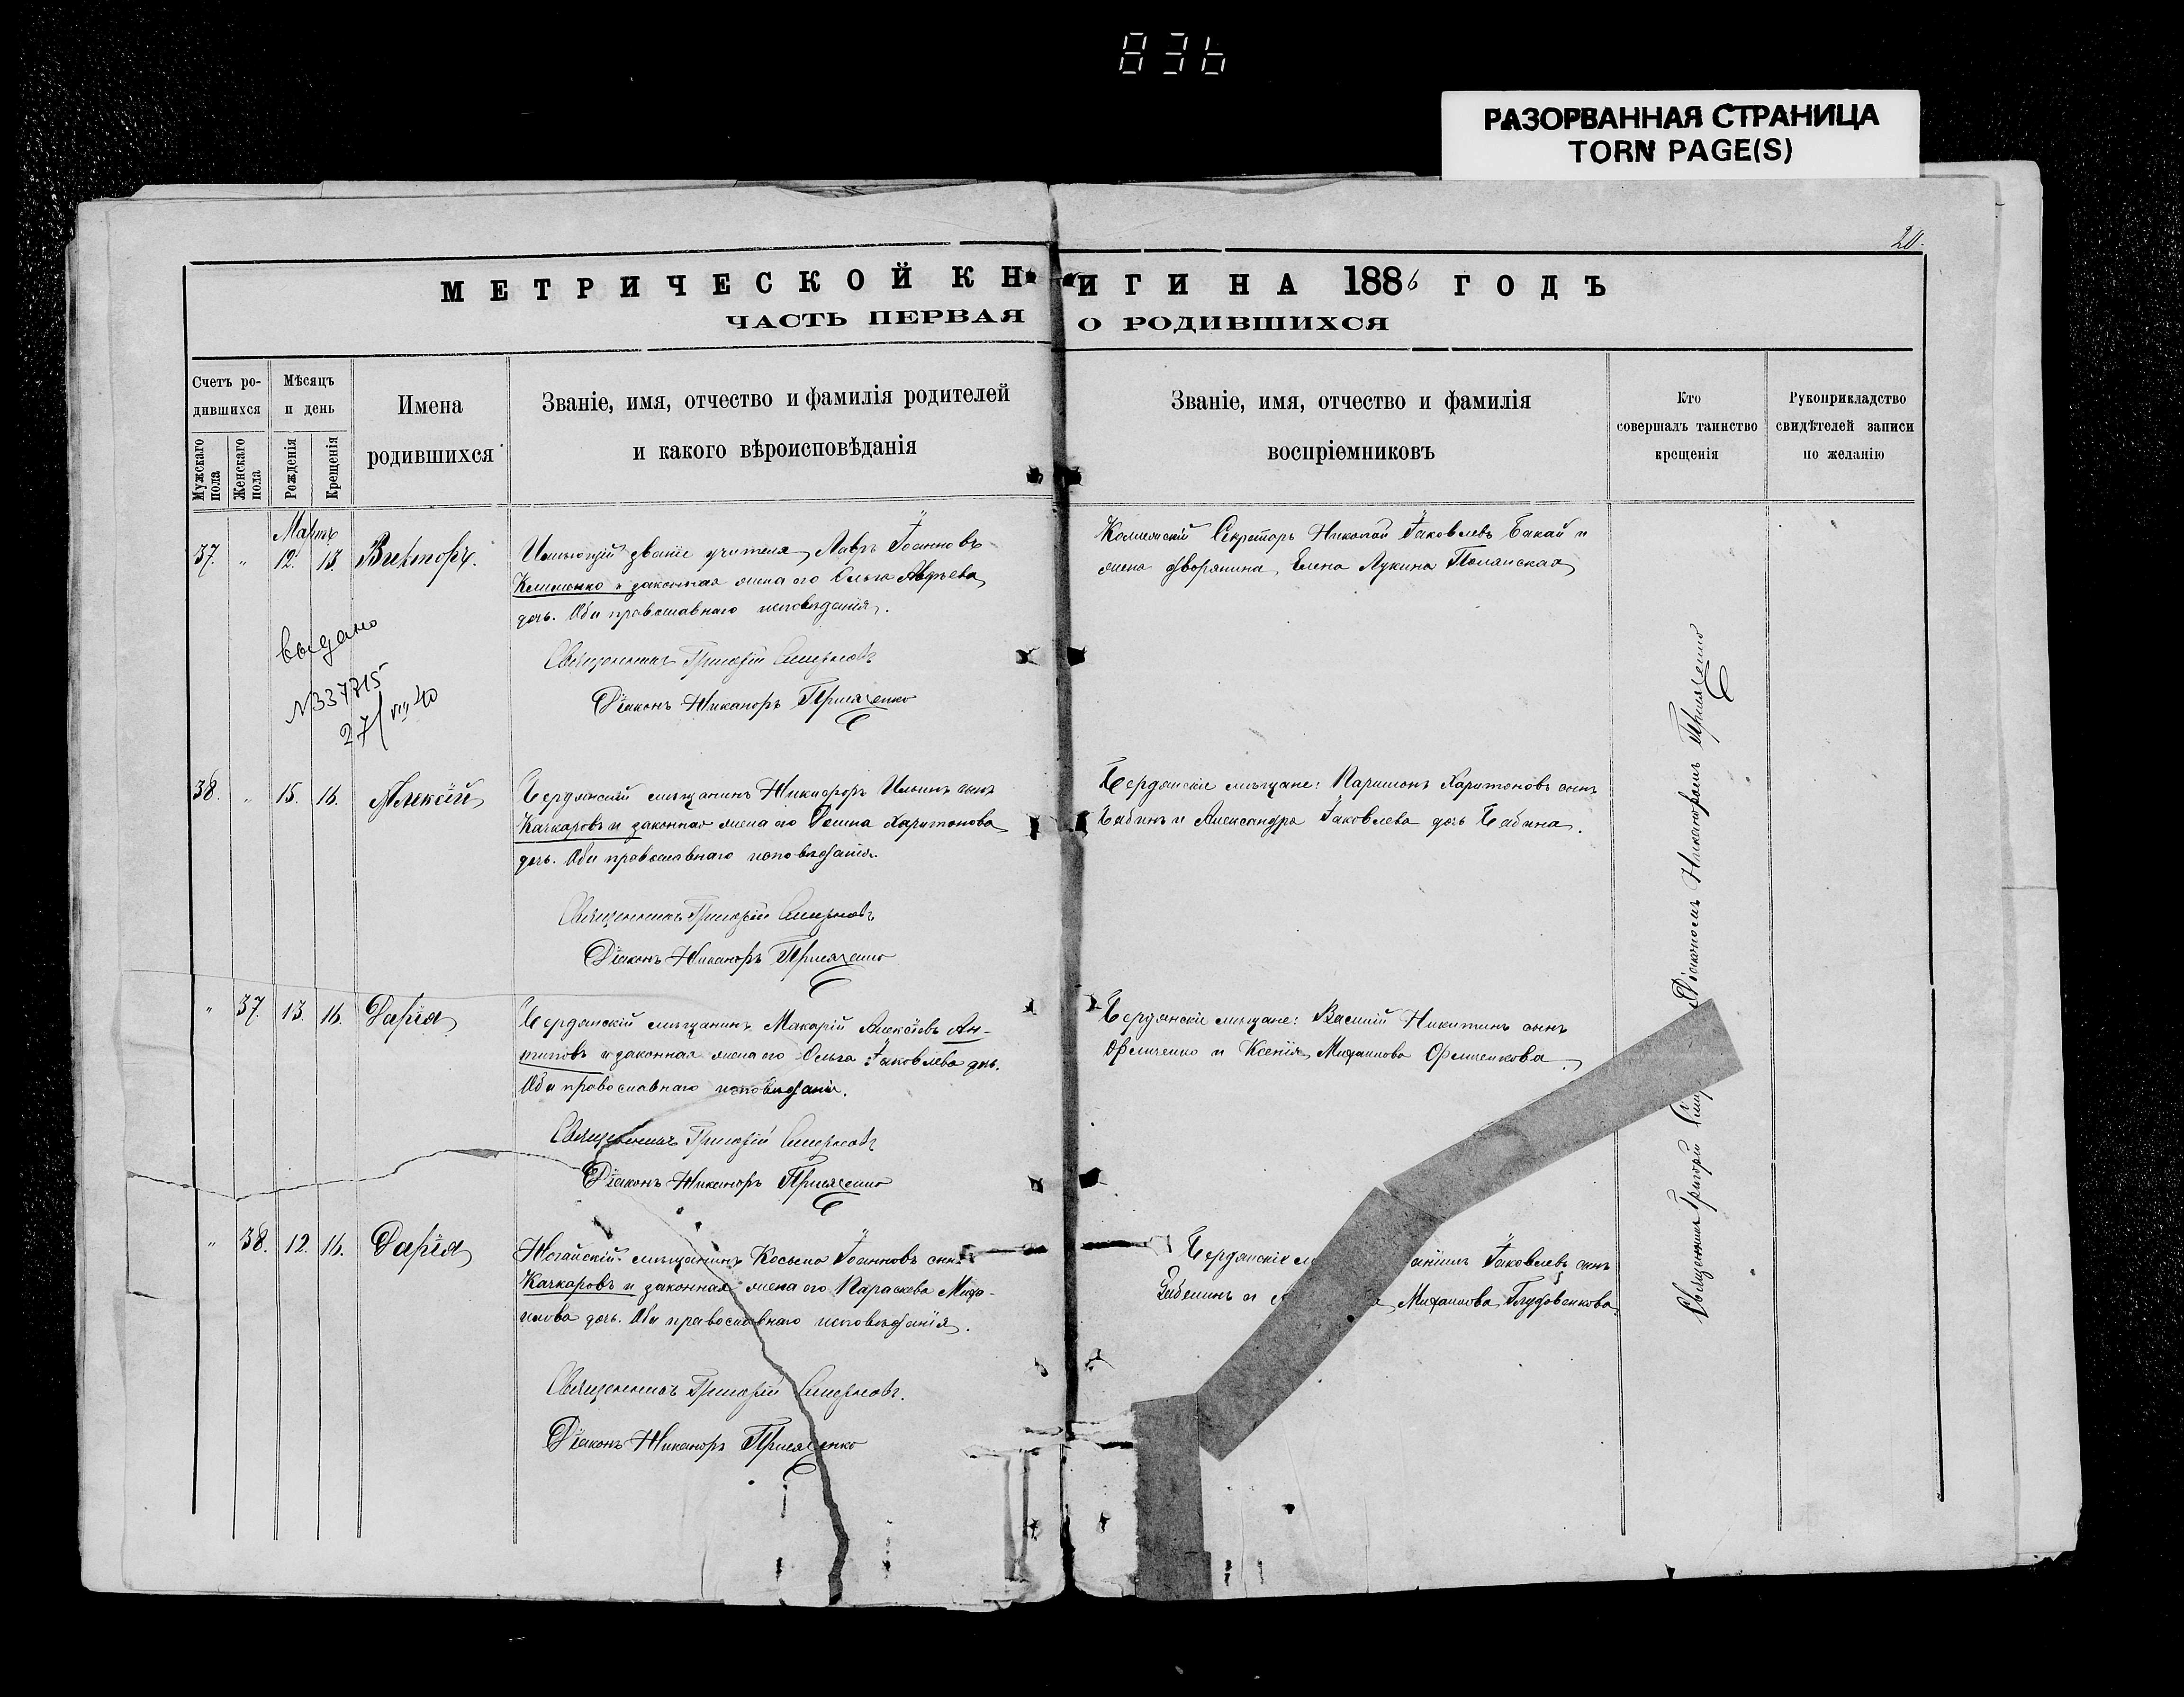 836
РАЗОРВАННАЯ СТРАНИЦА
TORN PAGE(S)
20.
МЕТРИЧЕСКОЙ КНИГИ НА 1886 ГОДЪ
ЧАСТЬ ПЕРВАЯ О РОДИВШИХСЯ
Счетъ ро-
дившихся
Мужскаго пола
Женскаго пола
Мѣсяцъ
и день
Рожденія
Крещенія
Имена
родившихся
Званіе, имя, отчество и фамилія родителей
и какого вѣроисповѣданія
Званіе, имя, отчество и фамилія
воспріемниковъ
Кто
совершалъ таинство
крещенія
Рукоприкладство
свидѣтелей записи
по желанію
Мартъ
37. " 12. 13. Викторъ.
Имѣющій званіе учителя, Лавръ Іоанновъ
Клименко и законная жена его Ольга Авдѣева
дочь. Оба православнаго исповѣданія.
Священникъ Григорій Смирновъ
Діаконъ Никаноръ Присяженко
Секретарь Николай Іаковлевъ Бакай и
жена дворянина, Елена Лукина
выдано
№337715
27/VIII 40
38. " 15. 16. Алексій
Бердянскій мѣщанинъ Никифоръ Ильинъ сынъ
Качкаровъ и законная жена его Харитонова
дочь. Оба православнаго исповѣданія.
Священникъ Григорій Смирновъ
Діаконъ Никаноръ Присяженко
Бердянскіе мѣщане: Харитоновъ сынъ
Бабинъ и Александра Іаковлева дочь Бабина.
" 37. 13. 16. Дарія
Бердянскій мѣщанинъ Макарій Алексіевъ Ан-
типовъ и законная жена его Ольга Іаковлева дочь.
Оба православнаго исповѣданія.
Священникъ Григорій Смирновъ
Діаконъ Никаноръ Присяженко
Бердянскіе мѣщане: Василій Никитинъ сынъ
и Ксенія Михаилова
" 38. 12. 16. Дарія
Ногайскій мѣщанинъ Косьма Іоанновъ сынъ
Качкаровъ и законная жена его Параскева Миха-
илова дочь. Оба православнаго исповѣданія.
Священникъ Григорій Смирновъ.
Діаконъ Никаноръ Присяженко
Бердянскіе Іаковлевъ сынъ
и Михаилова
Священникъ Григорій Діакономъ Никаноромъ Присяженко